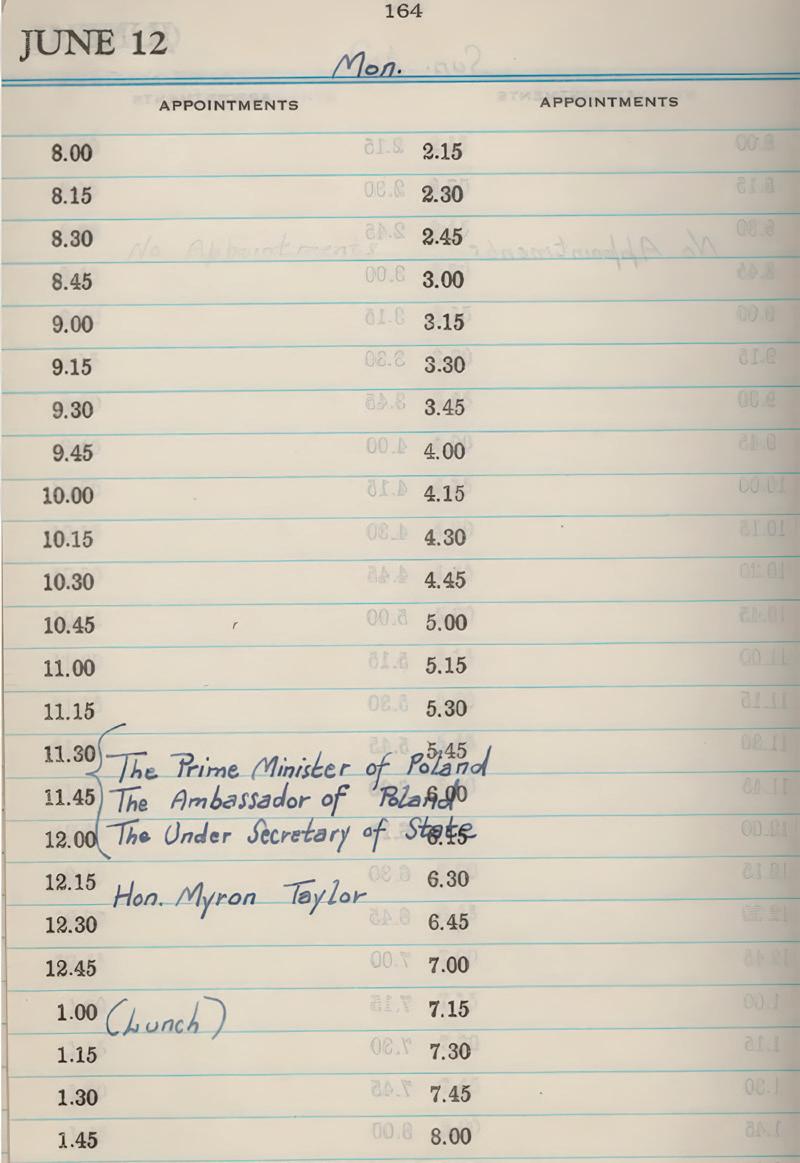 164
JUNE 12
Mon.
APPOINTMENTS APPOINTMENTS
8.00 2.15
8.15 2.30
8.30 2.45
8.45 3.00
9.00 3.15
9.15 3.30
9.30 3.45
9.45 4.00
10.00 4.15
10.15 4.30
10.30 4.45
10.45 5.00
11.00 5.15
11.15 5.30
11.30 The Prime Minister of Poland 5.45
11.45 The Ambassador of Poland 6.00
12.00 The Under Secretary of State 6.15
12.15 Hon. Myron Taylor 6.30
12.30 6.45
12.45 7.00
1.00 (Lunch) 7.15
1.15 7.30
1.30 7.45
1.45 8.00